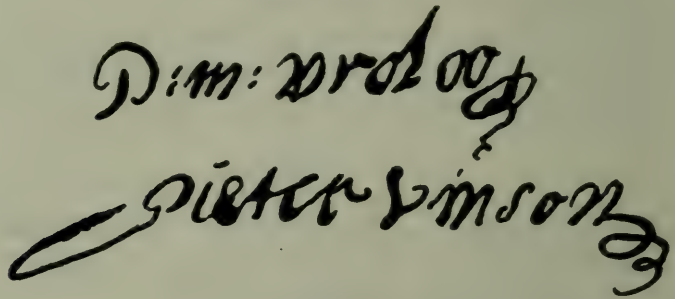 D: m: vroloo
pieter Vinson